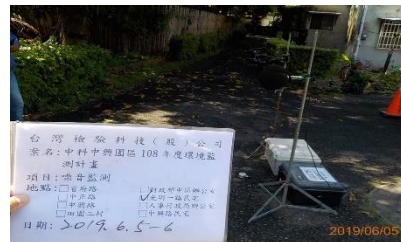 台灣檢驗科技(股)公司
案名:中科中興園區108年度環境監
測計畫
項目:噪音監測
地點:□省府路 □財政部中區辦公室
□中正路 ☑光明一路民宅
□中興路 □人事行政局辦公室
□田園二村 □中興路民宅
日期:2019.6.5-6
2019/06/05